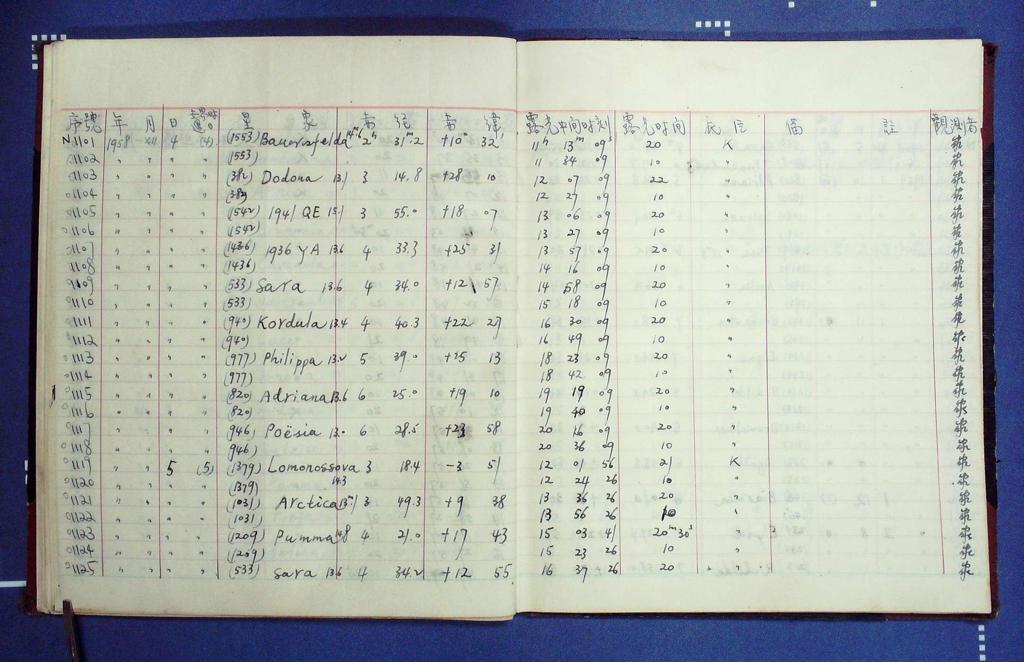 序號 年 月 日 星 象 赤 經 赤 緯 露光中間時刻 露光時間 底 片 備 註 觀測者
N1101 1958 XII 4 (4) (1553) Bauersfelda 14.6 2h 31m.2 +10° 32' 11h 13m 09s 20 K
1102 " " " " (1553) 11 34 09 10 "
1103 " " " " (382) Dodona 13.1 3 14.8 +28 10 12 07 09 22 "
1104 " " " " (382) 12 27 09 10 "
1105 " " " " (1542) 1941 QE 15.1 3 55.0 +18 07 13 06 09 20 "
1106 " " " " (1542) 13 27 09 10 "
1107 " " " " (1436) 1936 YA 13.6 4 33.3 +25 31 13 57 09 20 "
1108 " " " " (1436) 14 16 09 10 "
1109 " " " " (533) Sara 13.6 4 34.0 +12 57 14 58 09 20 "
1110 " " " " (533) 15 18 09 10 "
1111 " " " " (940) Kordula 13.4 4 40.3 +22 27 16 30 09 20 "
1112 " " " " (940) 16 49 09 10 "
1113 " " " " (977) Philippa 13.2 5 39.0 +25 13 18 23 09 20 "
1114 " " " " (977) 18 42 09 10 "
1115 " " " " (820) Adriana 13.6 6 25.0 +19 10 19 19 09 20 "
1116 " " " " (820) 19 40 09 10 "
1117 " " " " (946) Poësia 13.0 6 28.5 +23 58 20 16 09 20 "
1118 " " " " (946) 20 36 09 10 "
1119 " " 5 (5) (1379) Lomonossova 3 18.4 -3 51 12 01 56 21 K
1120 " " " " (1379) 14.3 12 24 26 10 "
1121 " " " " (1031) Arctica 13.1 3 49.3 +9 38 13 36 26 20 "
1122 " " " " (1031) 13 56 26 10 "
1123 " " " " (1209) Pumma 4 21.0 +17 43 15 03 41 20m 30s "
1124 " " " " (1209) 15 23 26 10 "
1125 " " " " (533) Sara 13.6 4 34.2 +12 55 16 37 26 20 "